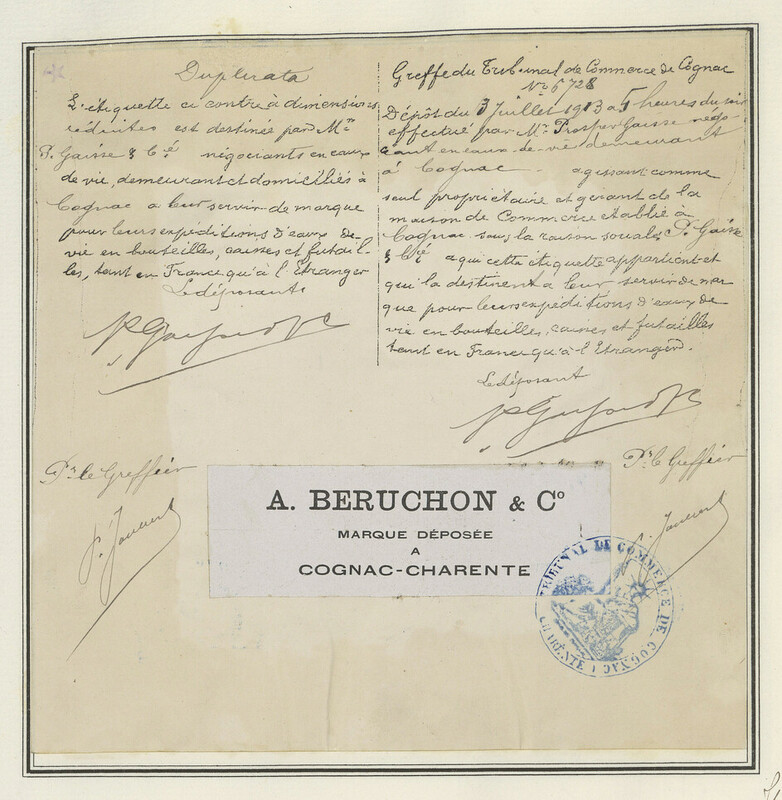 Duplicata
L'étiquette ci contre à dimensions
réduites est destinée par Mrs
P. Gaisse & Cie négociants en eaux
de vie, demeurant et domiciliés à
Cognac a leur servir de marque
pour leurs expéditions d'eaux de
vie en bouteilles, caisses et futail-
les, tant en France qu'à l'Etranger
Le déposant
Greffe du Tribunal de Commerce de Cognac
No 6728
Dépôt du 3 Juillet 1913 à 5 heures du soir
effectué par Mr Prosper Gaisse négo-
ciant en eaux-de-vie demeurant
à Cognac - agissant comme
seul propriétaire et gérant de la
maison de Commerce établie à
Cognac sous la raison sociale P. Gaisse
& Cie a qui cette étiquette appartient et
qui la destinent a leur servir de mar
que pour leurs expéditions d'eaux de
vie en bouteilles, caisses et futailles
tant en France qu'à l'Etranger.
Le déposant
Pr le Greffier
Pr le Greffier
A. BERUCHON & Co
MARQUE DÉPOSÉE
A
COGNAC-CHARENTE
TRIBUNAL DE COMMERCE DE COGNAC (CHARENTE)